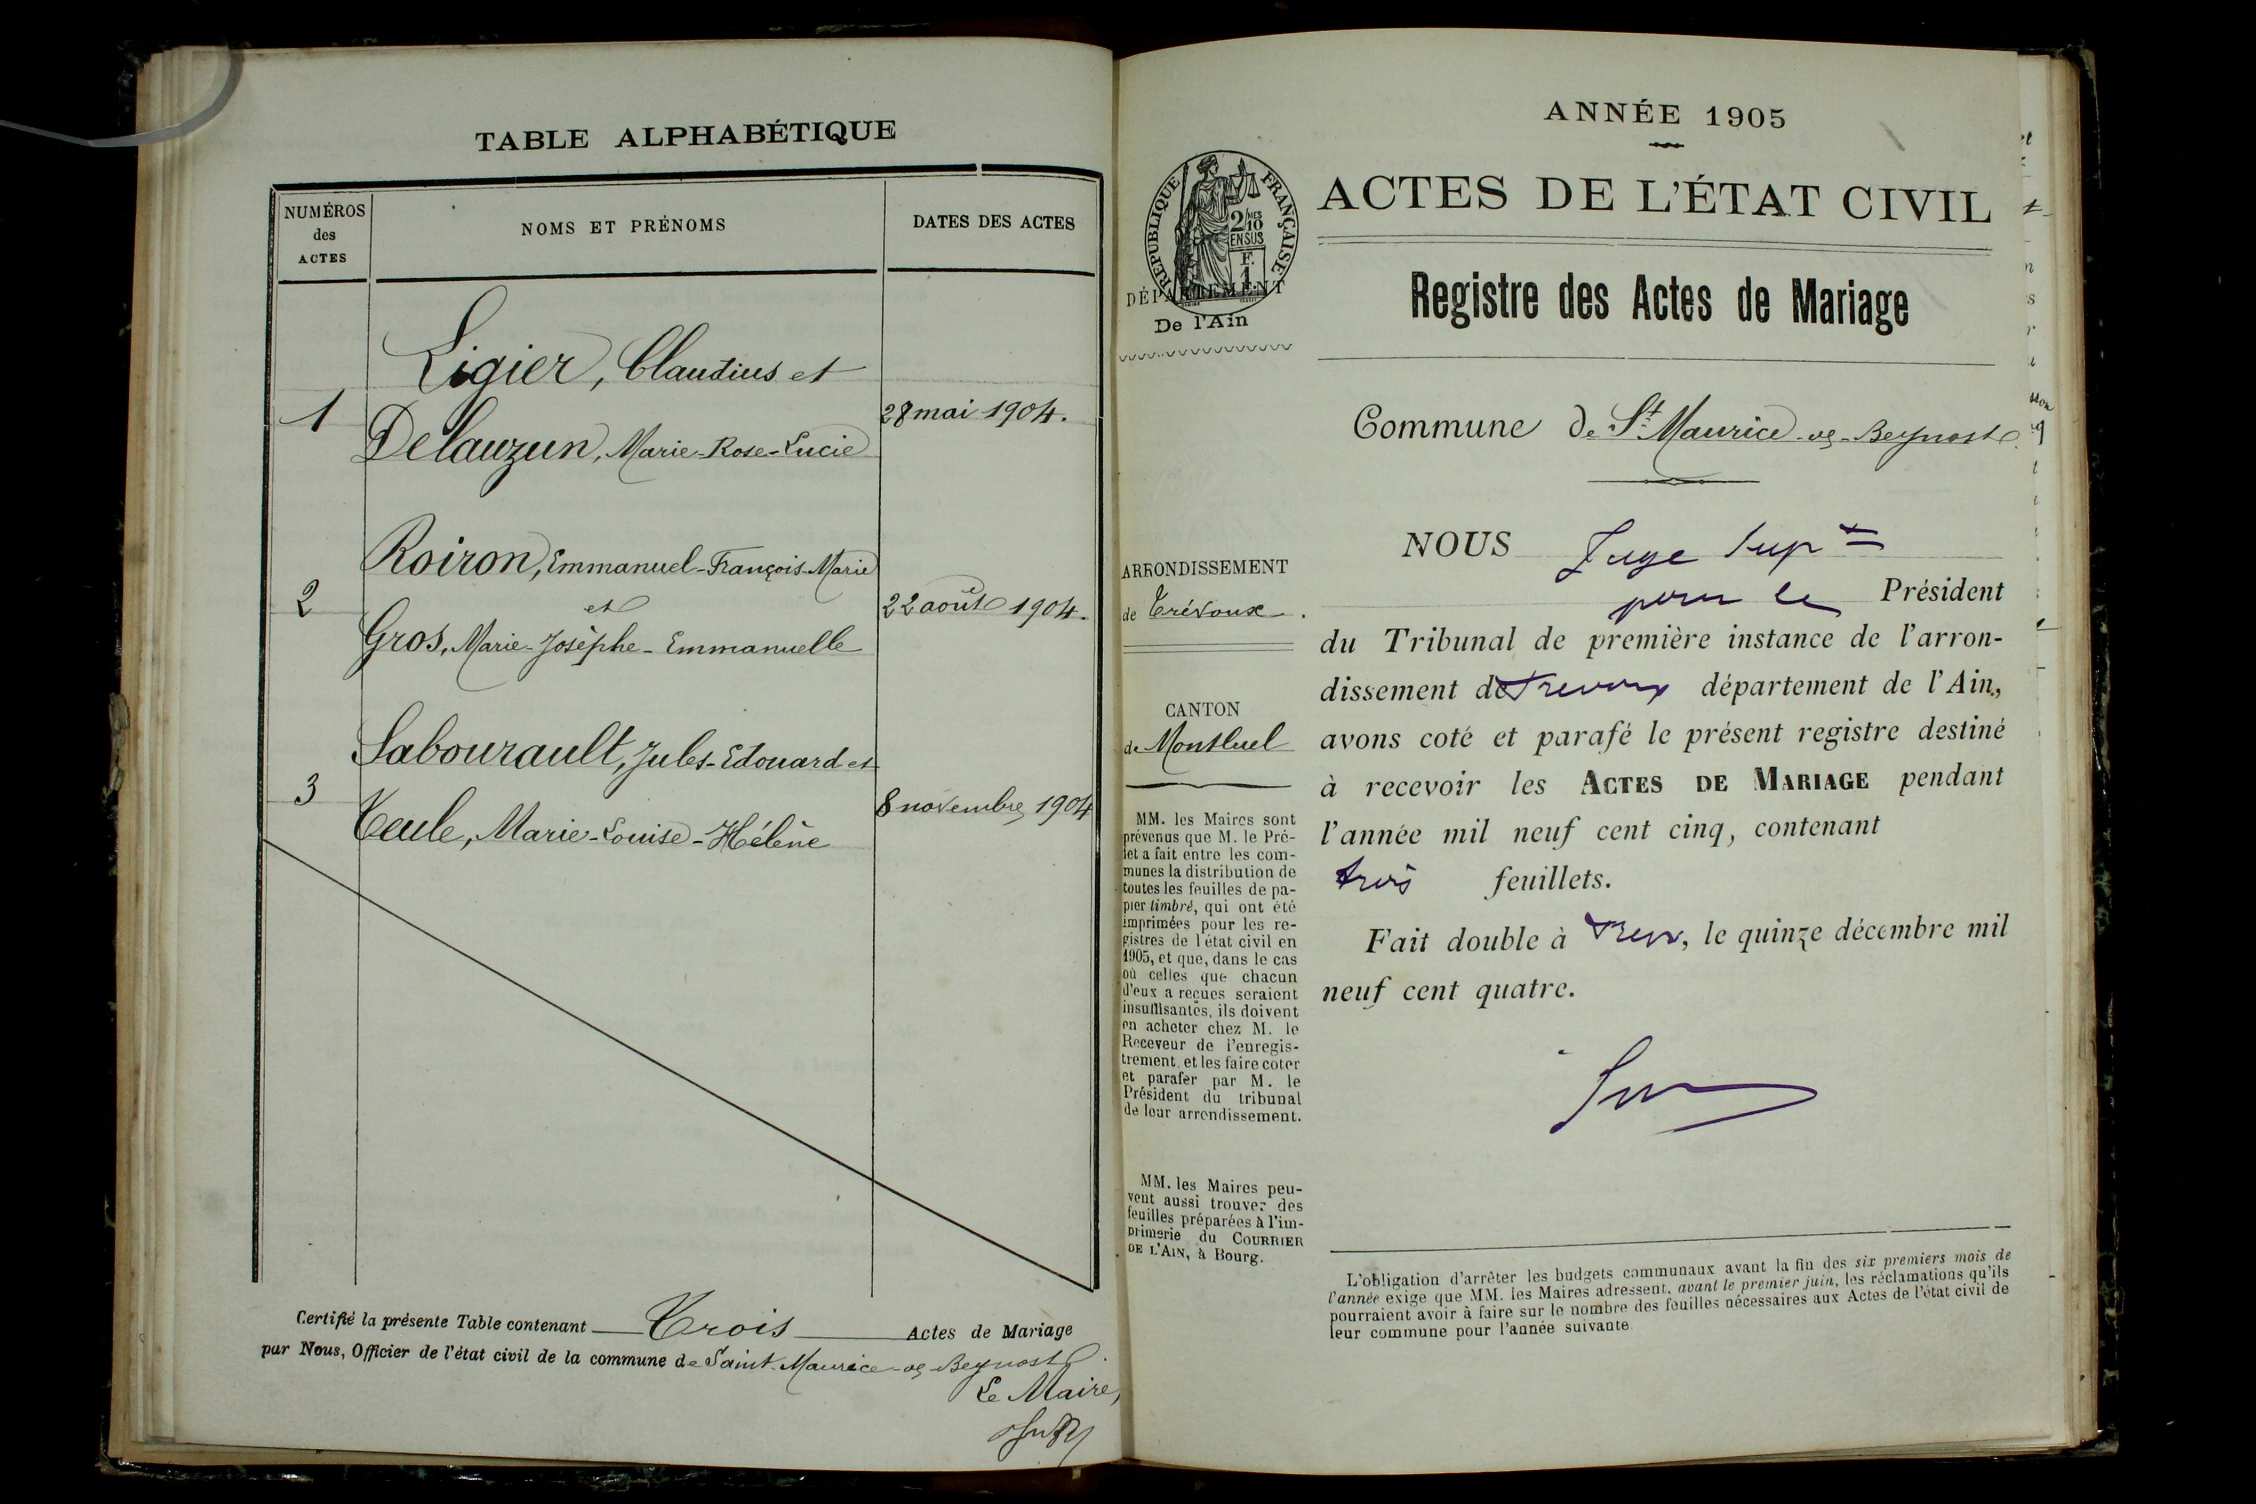 TABLE ALPHABÉTIQUE
NUMÉROS
des
ACTES
NOMS ET PRÉNOMS
DATES DES ACTES
Ligier, Claudius et
1
28 mai 1904.
Delauzun, Marie-Rose-Lucie
Roiron, Emmanuel-François-Marie
2
et
22 août 1904.
Gros, Marie-Josèphe-Emmanuelle
Sabourault, Jules-Edouard et
3
8 novembre 1904
Teule, Marie-Louise-Hélène
Certifié la présente Table contenant Trois Actes de Mariage
par Nous, Officier de l'état civil de la commune de Saint-Maurice-de-Beynost.
Le Maire,
ANNÉE 1905
ACTES DE L'ÉTAT CIVIL
RÉPUBLIQUE FRANÇAISE
2/10 MES
EN SUS
F.
1
DÉPARTEMENT
De l'Ain
Registre des Actes de Mariage
Commune de St Maurice-de-Beynost.
ARRONDISSEMENT
de Trévoux.
CANTON
de Montluel
MM. les Maires sont
prévenus que M. le Pré-
fet a fait entre les com-
munes la distribution de
toutes les feuilles de pa-
pier timbré, qui ont été
imprimées pour les re-
gistres de l'état civil en
1905, et que, dans le cas
où celles que chacun
d'eux a reçues seraient
insuffisantes, ils doivent
en acheter chez M. le
Receveur de l'enregis-
trement, et les faire coter
et parafer par M. le
Président du tribunal
de leur arrondissement.
MM. les Maires peu-
vent aussi trouver des
feuilles préparées à l'im-
primerie du COURRIER
DE L'AIN, à Bourg.
NOUS Juge Supt
pour le Président
du Tribunal de première instance de l'arron-
dissement de Trevoux département de l'Ain,
avons coté et parafé le présent registre destiné
à recevoir les ACTES DE MARIAGE pendant
l'année mil neuf cent cinq, contenant
trois feuillets.
Fait double à Trev, le quinze décembre mil
neuf cent quatre.
L'obligation d'arrêter les budgets communaux avant la fin des six premiers mois de
l'année exige que MM. les Maires adressent, avant le premier juin, les réclamations qu'ils
pourraient avoir à faire sur le nombre des feuilles nécessaires aux Actes de l'état civil de
leur commune pour l'année suivante